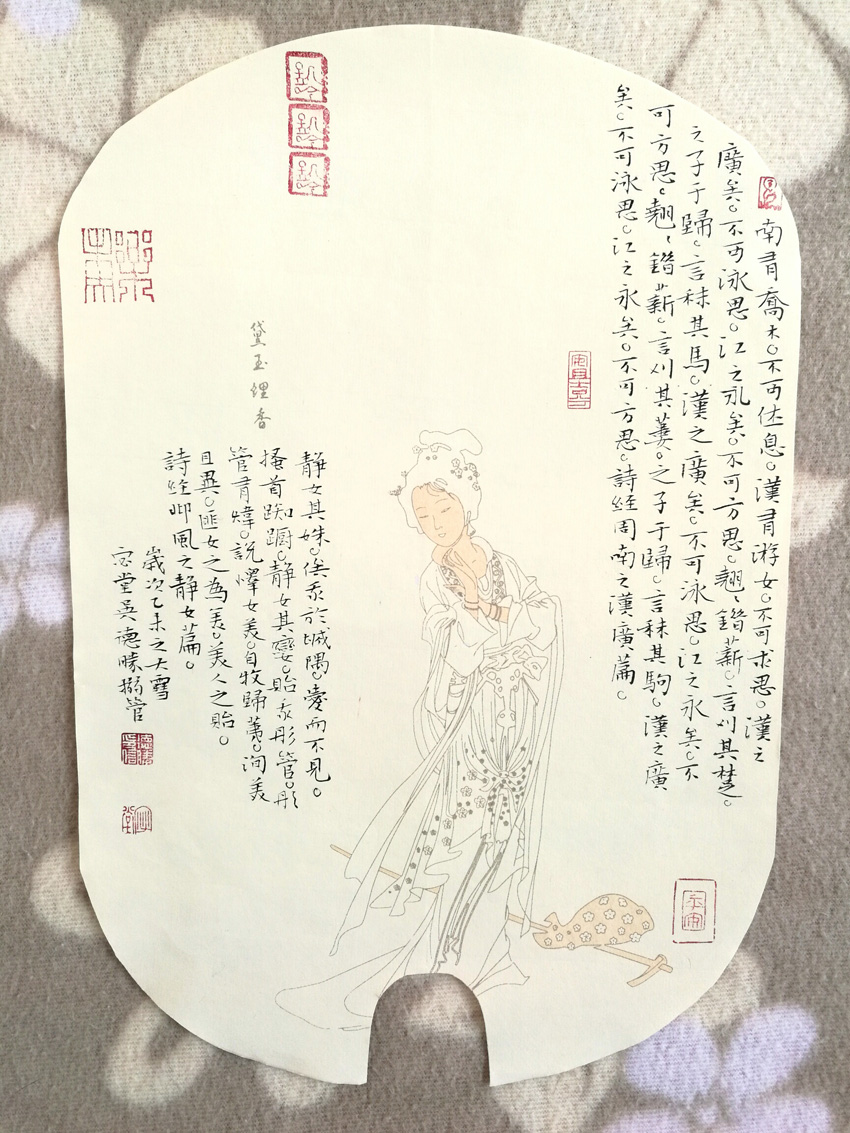 南有喬木。不可休息。漢有游女。不可求思。漢之
廣矣。不可泳思。江之永矣。不可方思。翹〻錯薪。言刈其楚。
之子于歸。言秣其馬。漢之廣矣。不可泳思。江之永矣。不
可方思。翹〻錯薪。言刈其蔞。之子于歸。言秣其駒。漢之廣
矣。不可泳思。江之永矣。不可方思。詩經周南之漢廣篇。
靜女其姝。俟我於城隅。愛而不見。
搔首踟躕。靜女其孌。貽我彤管。彤
管有煒。說懌女美。自牧歸荑。洵美
且異。匪女之為美。美人之貽。
詩經邶風之靜女篇。
歲次乙未之大雪
堂吳德搦管
黛玉埋香